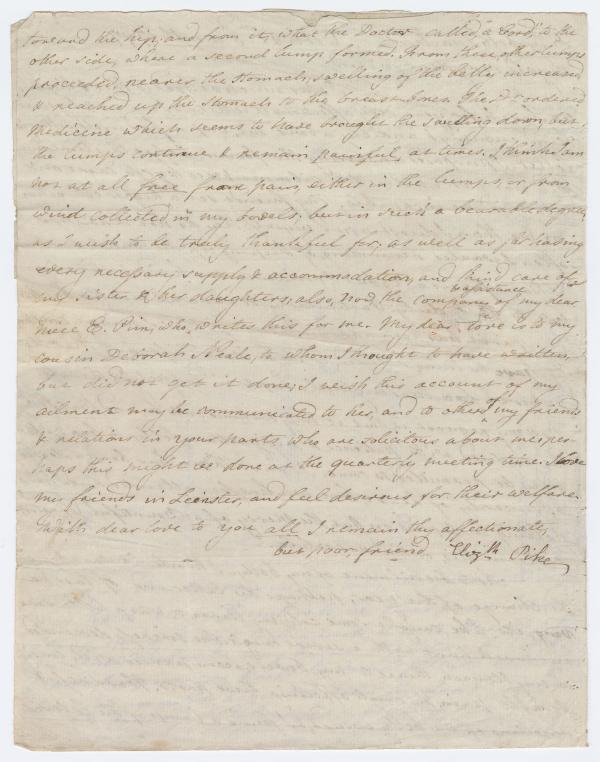 toward the hip, and from it, what the Doctor called, "a Cord," to the
other side, where a second lump formed. From these other lumps
proceeded, nearer the stomach, swelling of the increased
& reached up the stomach to the breast-bones. The Dr. ordered
medicine which seems to have brought the swelling down, but
the lumps continue & remain painful, at times. I think I am
not at all free from pain, either in the lumps, or from
wind collected in my bowels, but in such a bearable degree,
as I wish to be truly thankful for, as well as for having
every necessary supply & accommodation, and kind care of
my sister & her daughters, also, now, the company & assistance of my dear
niece E. Pim, who, writes this for me. My dear love is to my
cousin Deborah Neale, to whom I thought to have written,
but did not get it done; I wish this account of my
ailment may be communicated to her, and to others of my friends
& relations in your parts, who are solicitous about me; per
haps this might be done at the quarterly meeting time. I love
my friends in Leinster, and feel desirous for their welfare.
With dear love to you all I remain thy affectionate,
but poor friend Elizth Pike